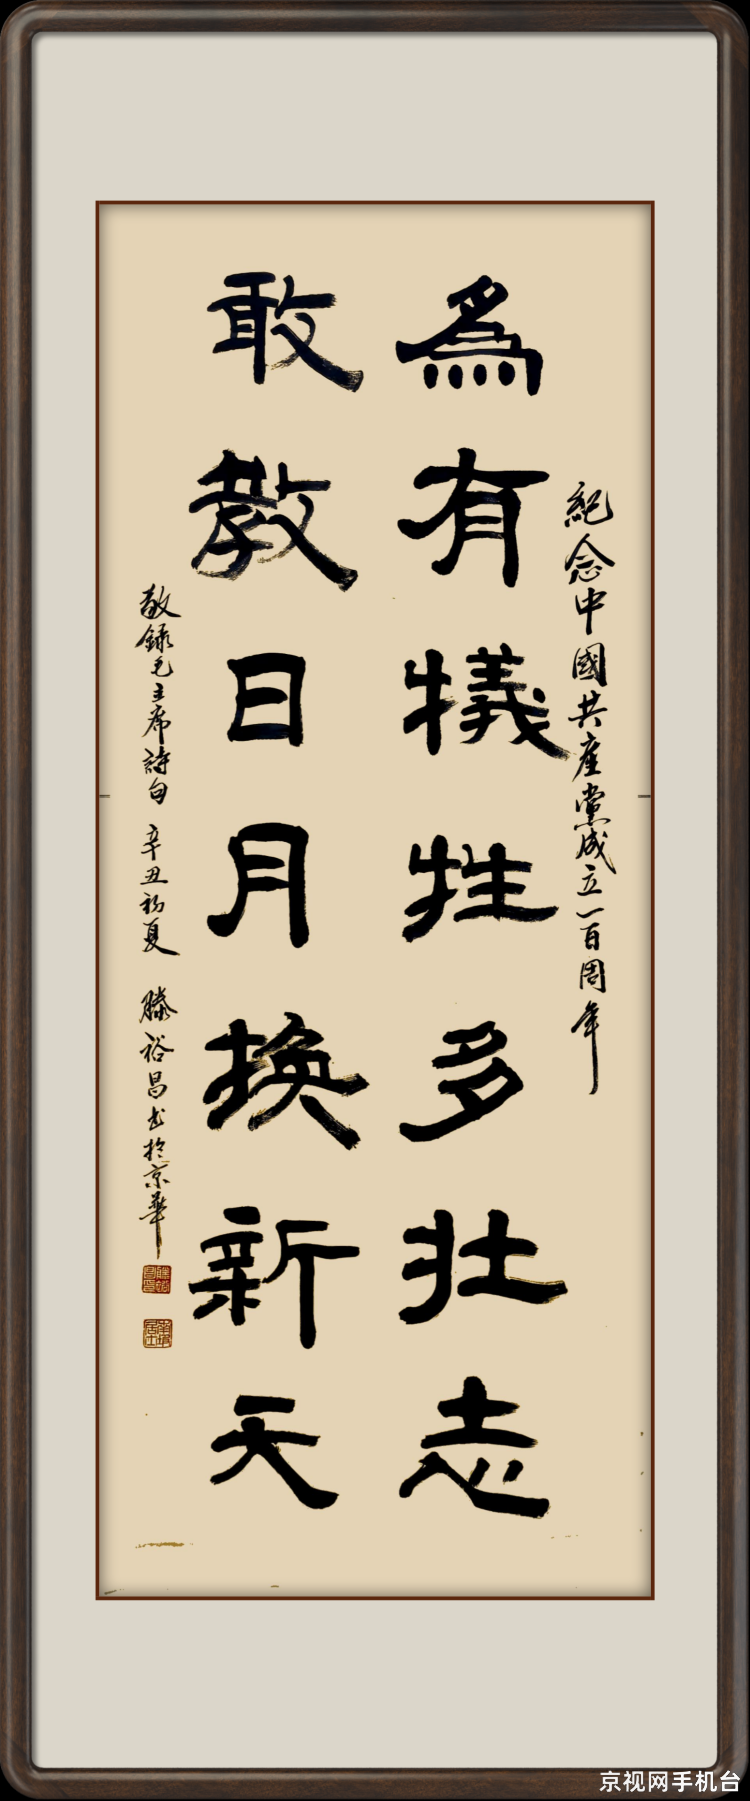 紀念中國共產黨成立一百周年
為有犧牲多壯志
敢教日月換新天
敬錄毛主席詩句 辛丑初夏 滕裕昌书於京華
京视网手机台